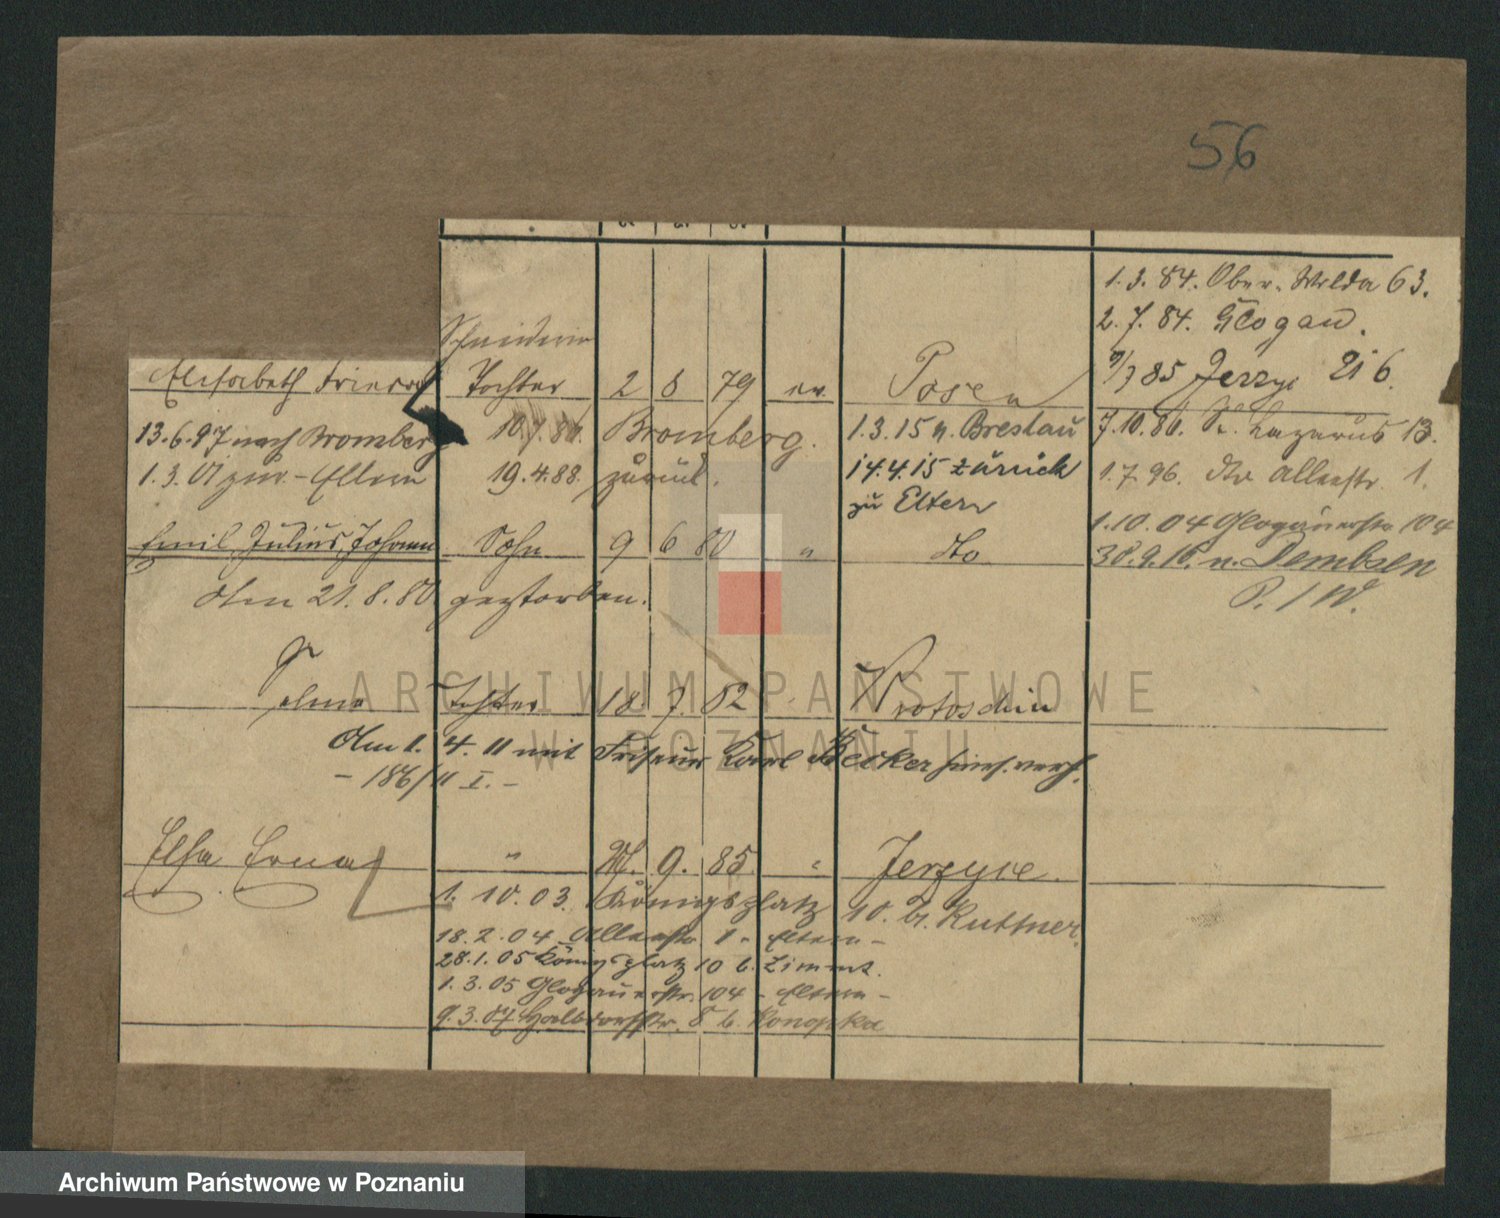 56
1.3.84. Ober-Wilda 63.
2.7.84. Glogau.
85 Jerzyc 216.
Schneiderin
Elisabeth Frieda Tochter 2 8 79 ev. Posen
7.10.86. St. Lazarus 13.
13.6.97 nach Bromberg 10.7.86. Bromberg. 1.3.15 n. Breslau
1.7.96. Allerstr. 1.
1.3.01 zur. - Eltern 19.4.88. zurück. 14.4.15 zurück
zu Eltern
1.10.04 Glogauerstr. 104
Emil, Julius, Johann Sohn 9 6 80 " do
30.9.16. n. Dembsen
P. / W.
Am 21.8.80 gestorben.
Selma Tochter 18. 7. 82 Krotoschin
Am 1. 4. 11 mit Friseur Karl Becker hier verh.
- 186/11 I. -
Elsa Erna " 9. 85. Jerzyce.
1. 10. 03. Königsplatz 10. b. Kuttner.
18.2.04 Allerstr. 1 - Eltern -
28.1.05 Königsplatz 10 b. Zimmt.
1.3.05 Glogauerstr. 104 - Eltern -
9.3.07 Halbdorfstr. 8 b. Konopka
ARCHIWUM PAŃSTWOWE
W POZNANIU
Archiwum Państwowe w Poznaniu